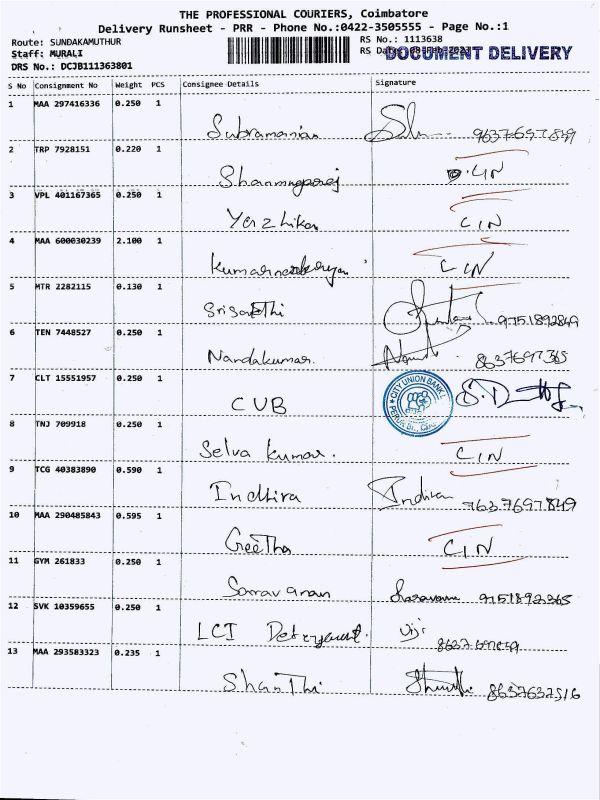 THE PROFESSIONAL COURIERS, Coimbatore
Delivery Runsheet - PRR - Phone No.:0422-3505555 - Page No.:1
Route: SUNDAKAMUTHUR RS No.: 1113638
Staff: MURALI RS Date: DOCUMENT DELIVERY
DRS No.: DCJB111363801
S No Consignment No Weight PCS Consignee Details Signature
1 MAA 297416336 0.250 1
Subramanian 9637697849
2 TRP 7928151 0.220 1
Shanmugaraj CIN
3 VPL 401167365 0.250 1
Yazhikan CIN
4 MAA 600030239 2.100 1
CIN
5 MTR 2282115 0.130 1
9751892849
6 TEN 7448527 0.250 1
Nandakumar. 8637697365
7 CLT 15551957 0.250 1 CITY UNION BANK
CUB
8 TNJ 709918 0.250 1
Selva kumar. CIN
9 TCG 40383890 0.590 1
Indhira Indira 7637697849
10 MAA 290485843 0.595 1
Geetha CIN
11 GYM 261833 0.250 1
Saravanan 9751892365
12 SVK 10359655 0.250 1
LCI Detergent. Viji
13 MAA 293583323 0.235 1
Shanthi 8637637516